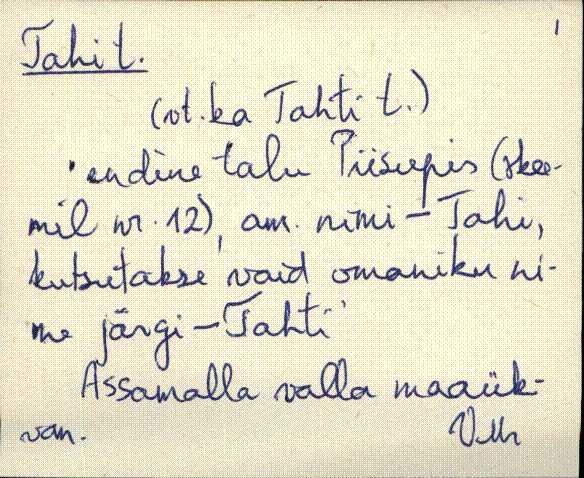 1
Tahi t.
(vt. ka Tahti t.)
'endine talu Piisupis (skee-
mil nr. 12), am. nimi – Tahi,
kutsutakse vaid omaniku ni-
me järgi – Tahti'
Assamalla valla maaük-
van.